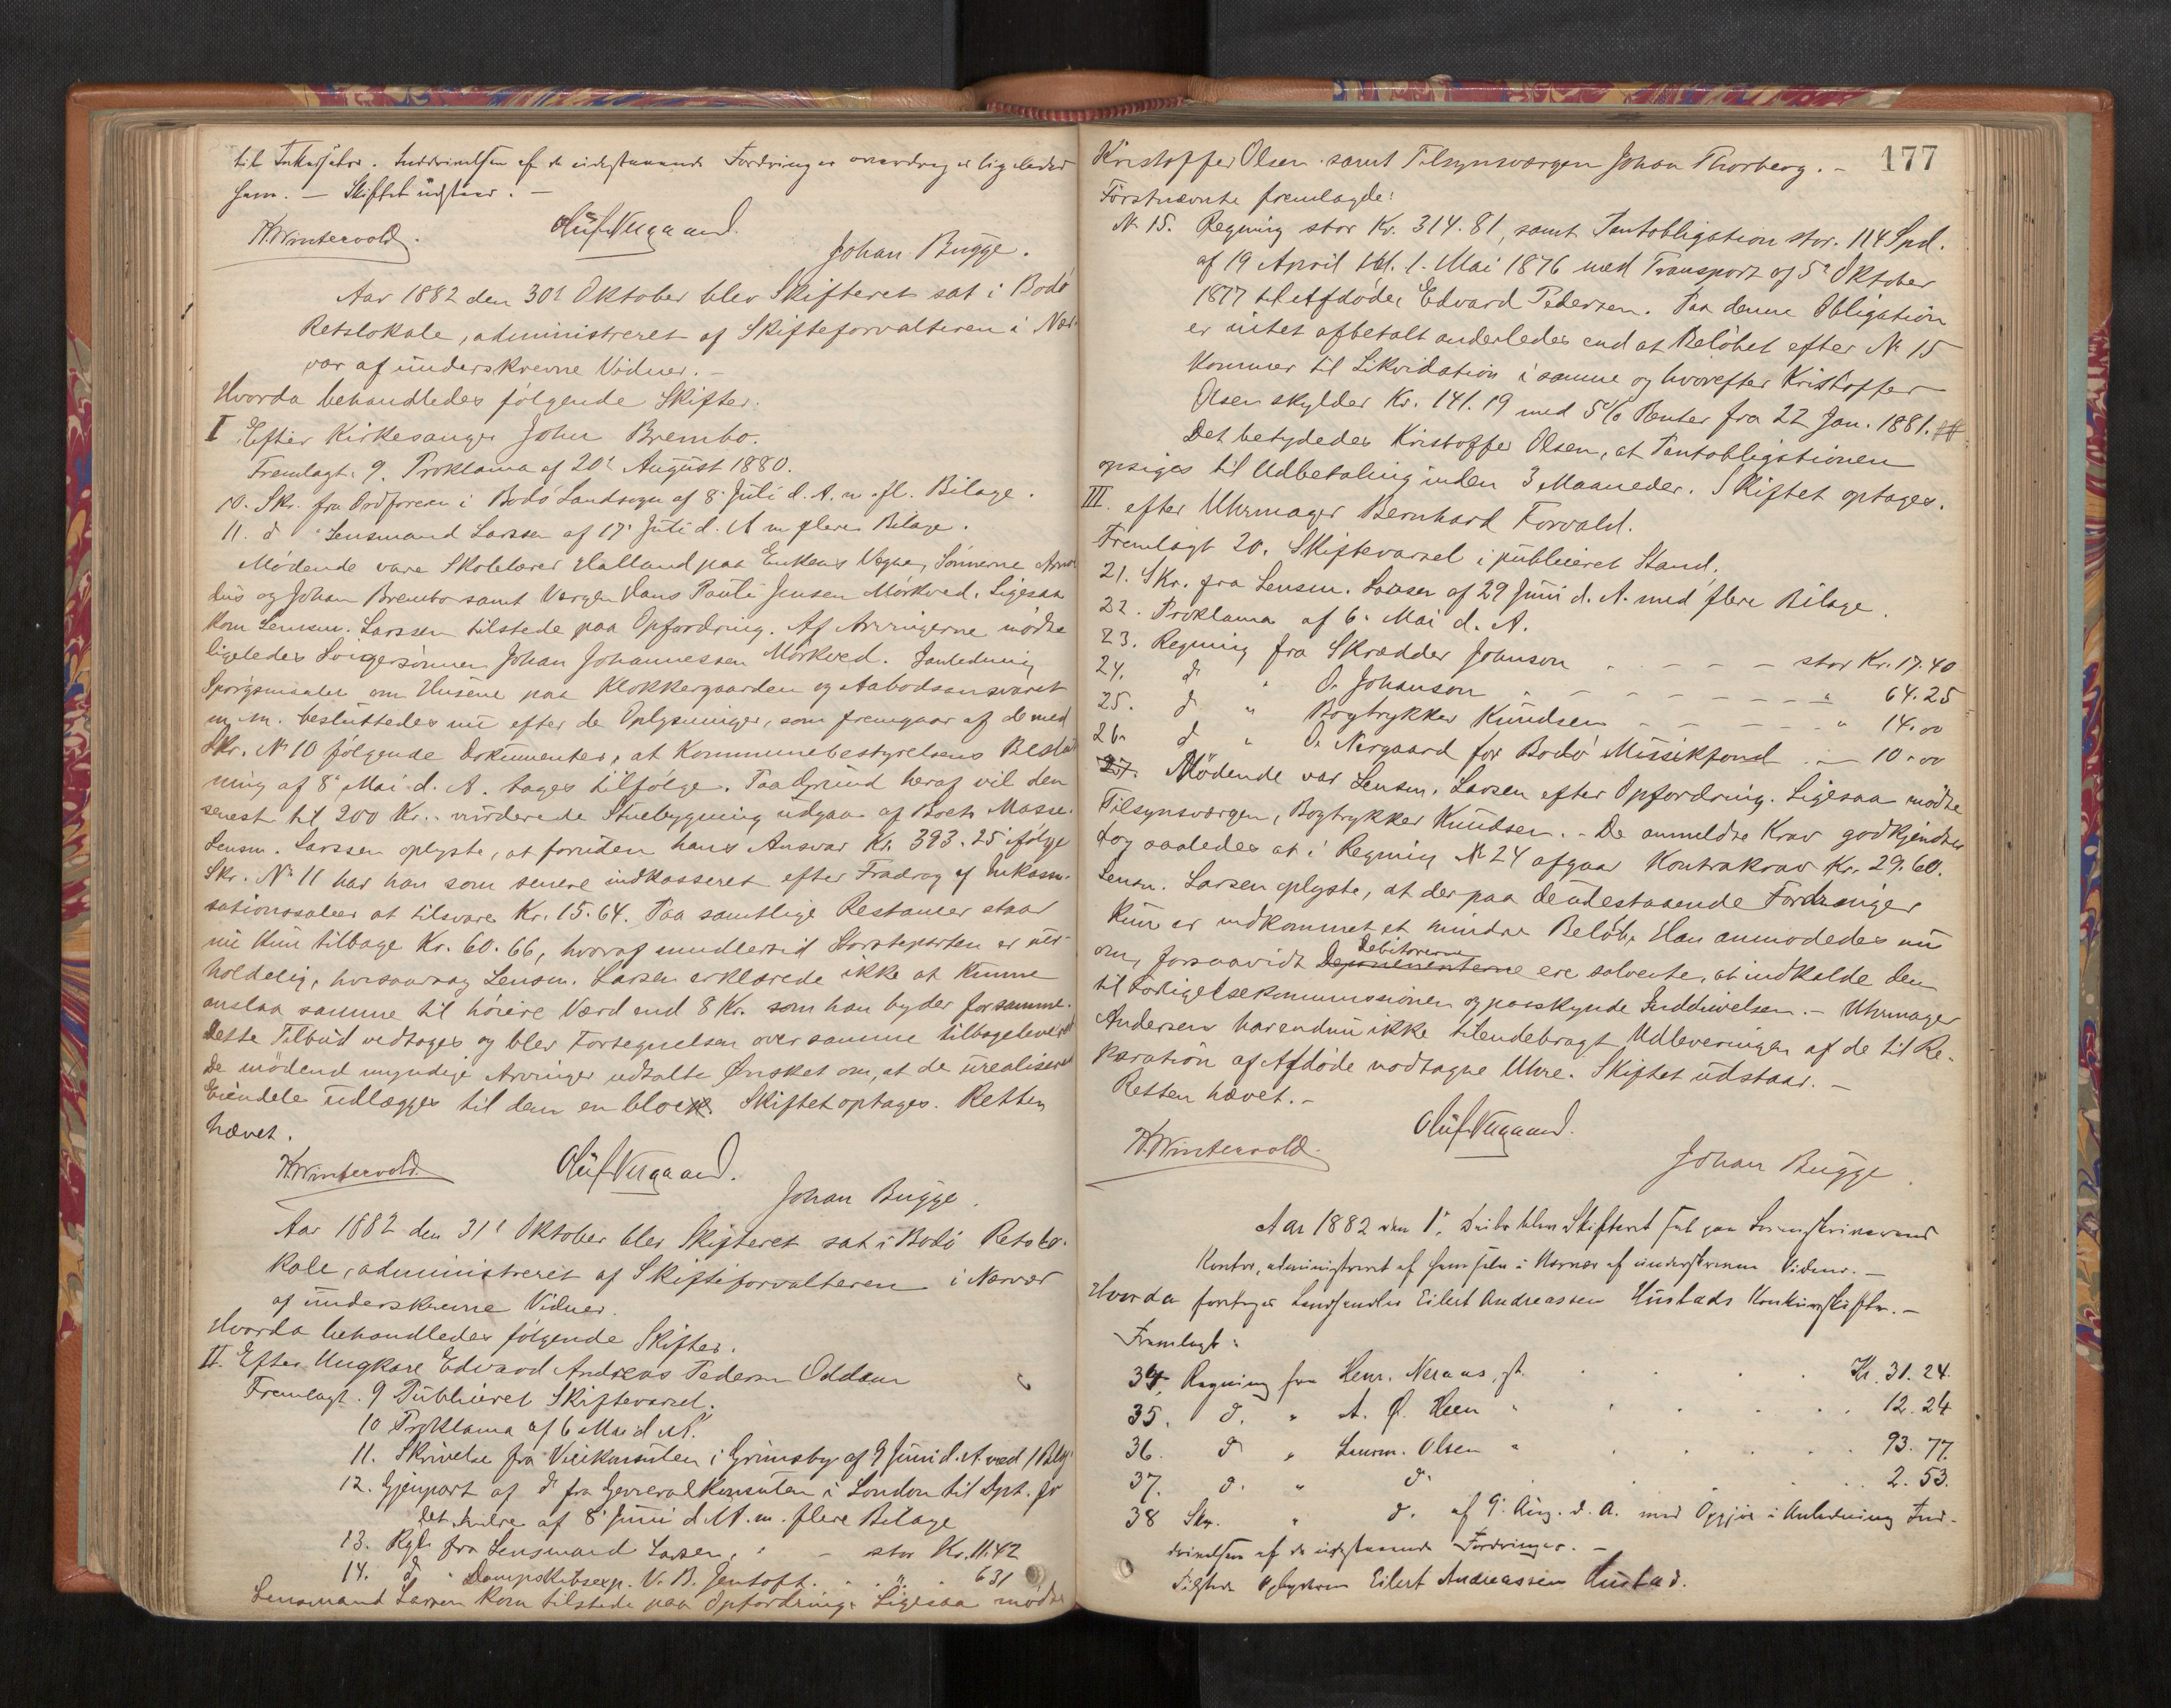 til Inkassator. Inddrivelsen af de udestaaende Fordringer overdrages ligeledes
ham. — Skiftet udstaar. —
W. Wintervold. Oluf Nergaard. Johan Bugge.
Aar 1882 den 30t Oktober blev Skifteret sat i Bodø
Retslokale, administreret af Skifteforvalteren i Nær-
vær af underskrevne Vidner. —
Hvorda behandledes følgende Skifter.
I Efter Kirkesanger John Brembo.
Fremlagt. 9. Proklama af 20t August 1880.
10. Skr. fra Ordføreren i Bodø Landsogn af 8' Juli d. A. m. fl. Bilage.
11. d " Lensmand Larssen af 17' Juli d. A m flere Bilage.
Mødende vare Skolelærer Halland paa Enkens Vegne, Sønnerne
og Johan Brembo samt Værgen Hans Pauli Jensen Mörkved. Ligesaa
kom Lensm. Larssen tilstede paa Opfordring. Af Arvingerne mødte
ligeledes Svigersønnen Johan Johannessen Mörkved. I Anledning
Spörgsmaalet om Husene paa Klokkergaarden og Aabodsansvaret
m. m. besluttedes nu efter de Oplysninger, som fremgaar af de med
Skr. No 10 følgende Dokumenter, at Kommunebestyrelsens Beslut
ning af 8' Mai d. A. tages tilfølge. Paa Grund heraf vil den
senest til 200 Kr. vurderede Stuebygning udgaa af Boets Masse.
Lensm. Larssen oplyste, at foruden hans Ansvar Kr. 393.25 ifølge
Skr. No 11 har han som senere indkasseret efter Fradrag af Inkassa-
tionssalær at tilsvare Kr. 15.64. Paa samtlige Restancer staar
nu kun tilbage Kr. 60.66, hvoraf imidlertid Størsteparten er uer-
holdelig, hvorfor Lensm. Larsen erklærede ikke at kunne
anslaa samme til høiere Værd end 8 Kr. som han byder for samme.
Dette Tilbud vedtoges og blev Fortegnelsen over samme tilbageleveret
De mødende myndige Arvinger udtalte Ønsket om, at de urealiserede
Eiendele udlægges til dem en bloc. Skiftet optages. Retten
hævet.
W. Wintervold. Oluf Nergaard. Johan Bugge.
Aar 1882 den 31t Oktober blev Skifteret sat i Bodö Retslo-
kale, administreret af Skifteforvalteren i Nærvær
af underskrevne Vidner.
Hvorda behandledes følgende Skifter.
II. Efter Ungkarl Edvard Andreas Pedersen Oddan
Fremlagt. 9 Publiceret Skiftevarsel.
10 Proklama af 6 Mai d. A.
11. Skrivelse fra Vicekonsulen i Grimsby af 9 Juni d. A. med 1 Bilag
12. Gjenpart af d' fra Generalkonsulen i London til Dpt. for
det Indre af 8' Juni d. A. m. flere Bilage
13. Regn. fra Lensmand Larsen. - stor Kr. 11.42
14. d " Dampskibsexp. V. B. Jentoft. . „ . 631
Lensmand Larsen kom tilstede paa Opfordring. Ligesaa mødte
177
Kristoffer Olsen samt Tilsynsværgen Johan Thorberg. —
Förstnævnte fremlagde:
No 15. Regning stor Kr. 314.81, samt Pantobligation stor. 114 Spd.
af 19 April tgl. 1. Mai 1876 med Transport af 5' Oktober
1877 til Afdøde Edvard Pedersen. Paa denne Obligation
er intet afbetalt anderledes end at Beløbet efter No 15
kommer til Likvidation i samme og hvorefter Kristoffer
Olsen skylder Kr. 141.19 med 5% Renter fra 22 Jan. 1881.
Det betydedes Kristoffer Olsen, at Pantobligationen
opsiges til Udbetaling inden 3 Maaneder. Skiftet optages.
III. efter Uhrmager Bernhard Forvald.
Fremlagt 20. Skiftevarsel i publiceret Stand.
21. Skr. fra Lensm. Larsen af 29 Juni d. A. med flere Bilage.
22. Proklama af 6. Mai d. A.
23. Regning fra Skrædder Johnson - - - - stor Kr. 17.40
24. d " O. Johanson - - - - - - " 64.25
25. d " Bogtrykker Knudsen - - - - " 14.00
26. d " O. Nergaard for Bodö Musikfond - - 10.00
27. Mødende var Lensm. Larsen efter Opfordring. Ligesaa mødte
Tilsynsværgen, Bogtrykker Knudsen. - De anmeldte Krav godkjendtes
dog saaledes at i Regning No 24 afgaar Kontrakrav Kr. 29.60.
Lensm. Larsen oplyste, at der paa de udestaaende Fordringer
kun er indkommet et mindre Beløb. Han anmodedes nu
om, forsaavidt Debitorerne ere solvente, at indkalde dem
til Forligelseskommissionen og paaskynde Inddrivelsen. - Uhrmager
Andersen har endnu ikke tilendebragt Udleveringen af de til Re-
paration af Afdøde modtagne Uhre. Skiftet udstaar. —
Retten hævet. -
W. Wintervold. Oluf Nergaard. Johan Bugge
Aar 1882 den 1' Dcbr blev Skifteret sat paa Sorenskriverens
Kontor, administreret af ham selv i Nærvær af underskrevne Vidner. —
Hvorda foretoges Landhandler Eilert Andreassen Hustads Konkursskifte. —
Fremlagt:
34. Regning fra Henr. Neraas, st. . . . . Kr. 31.24.
35. d. " A. Ø. Heen " . . . . 12.24
36. d " Lensm. Olsen " . . . . 93.77.
37. d. " d. . . . . 2.53.
38 Skr. " d. af 9' Aug. d. A. med Opgjör i Anledning Ind-
drivelsen af de udestaaende Fordringer. —
Tilstede Eilert Andreassen Hustad.